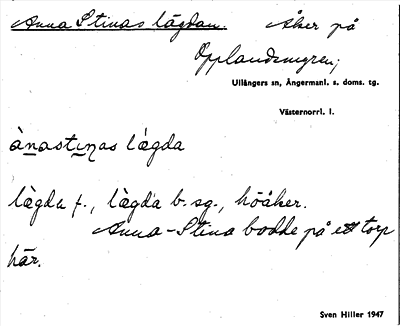 Anna Stinas lägdan. Åker på
Opplandsmyren;
Ullångers sn, Ångermanl. s. doms. tg.
Västernorrl. l.
ànastinas lǽgda
lägda f., lägda b. sg., höåker.
Anna-Stina bodde på ett torp
här.
Sven Hiller 1947